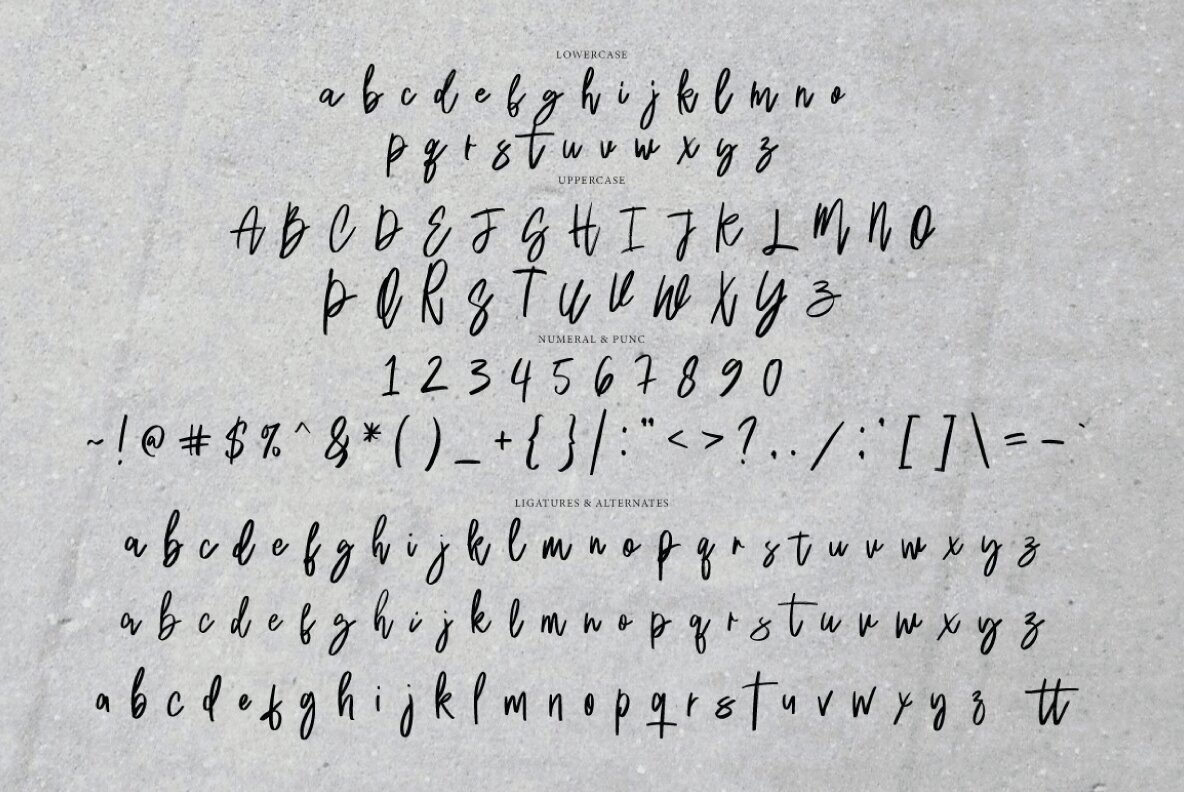 LOWERCASE
a b c d e f g h i j k l m n o
p q r s t u v w x y z
UPPERCASE
A B C D E F G H I J K L M N O
P Q R S T U V W X Y Z
NUMERAL & PUNC
1 2 3 4 5 6 7 8 9 0
~ ! @ # $ % ^ & * ( ) _ + { } | : " < > ? . . / ; ' [ ] \ = - `
LIGATURES & ALTERNATES
a b c d e f g h i j k l m n o p q r s t u v w x y z
a b c d e f g h i j k l m n o p q r s t u v w x y z
a b c d e f g h i j k l m n o p q r s t u v w x y z tt